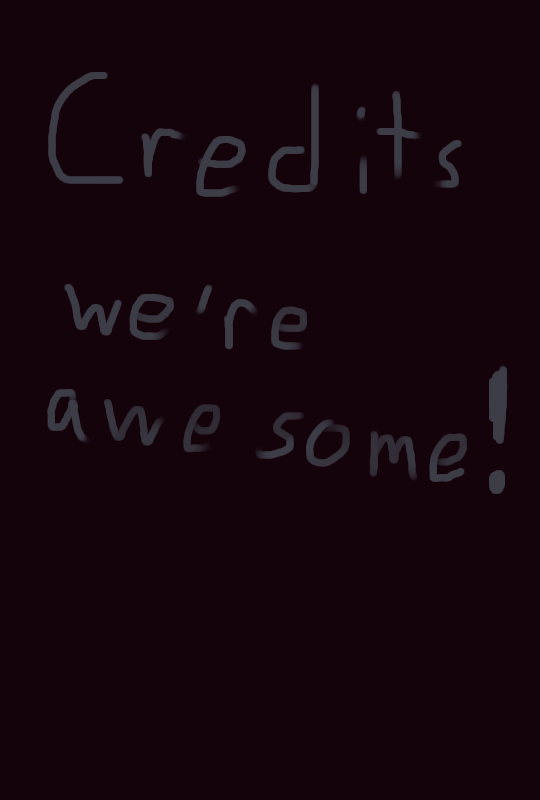 Credits
we're
awesome!